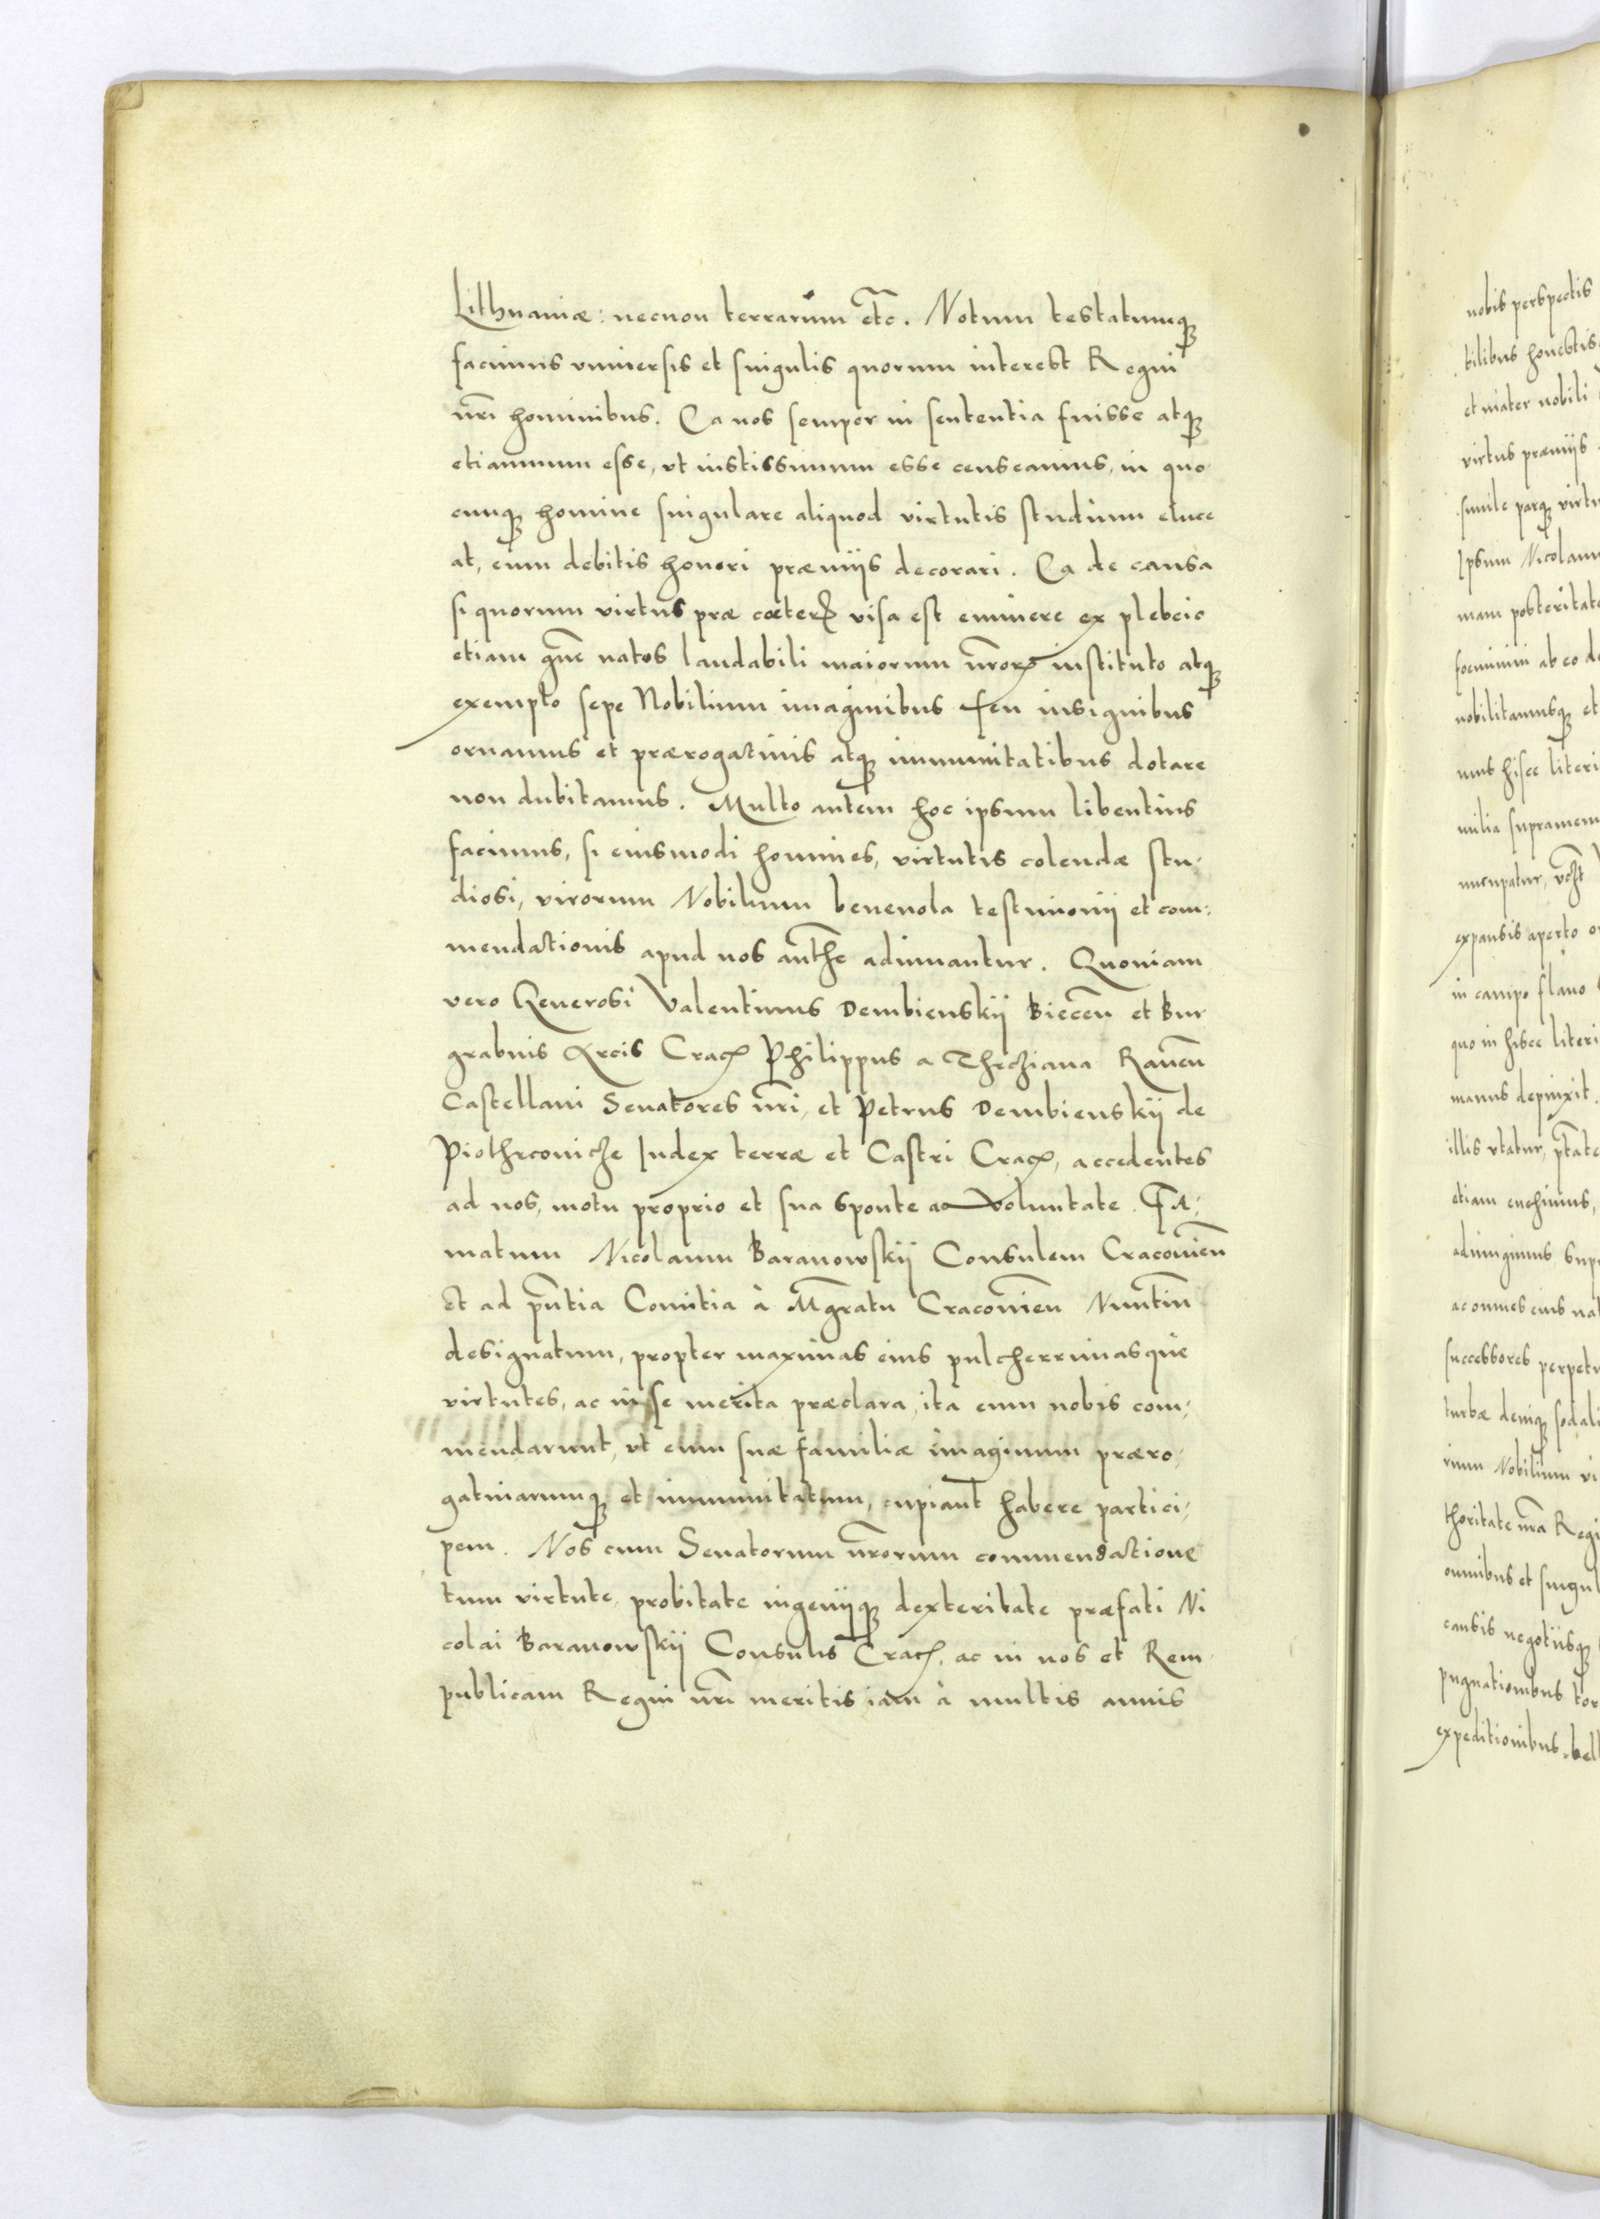 Lithuaniæ: necnon terrarum etc̃. Notum testatumq₃
facimus vniuersis et singulis quorum interest Regni
nr̃i hominibus. Ea nos semper in sententia fuisse atq₃
etiamnum esse, vt iustissimum esse censeamus, in quo
cunq₃ homine singulare aliquod virtutis studium eluce
at, eum debitis honori præmijs decorari. Ea de causa
si quorum virtus præ cæterꝝ visa est eminere ex plebeio
etiam gñe natos laudabili maiorum nr̃orꝝ instituto atq₃
exemplo sepe Nobilium imaginibus seu insignibus
ornamus et prærogatiuis atq₃ immunitatibus dotare
non dubitamus. Multo autem hoc ipsum libentius
facimus, si eiusmodi homines, virtutis colendæ stu-
diosi, virorum Nobilium beneuola testimonij et com-
mendationis apud nos auth̃e adiuuantur. Quoniam
vero Generosi Valentinus Dembienskij Biecen̄ et Bur
grabuis Arcis Crac̄ Philippus a Thecziana Rauen̄
Castellani Senatores nr̃i, et Petrus Dembienskij de
Piothrconicze Iudex terræ et Castri Crac̄, accedentes
ad nos, motu proprio et sua sponte ac voluntate. Fa-
matum Nicolaum Baranowskij Consulem Cracouien̄
Et ad pñtia Comitia à Mḡratu Cracouien̄ Nuntiū
designatum, propter maximas eius pulcherrimasque
virtutes, ac in se merita præclara, ita eum nobis com-
mendarunt, vt eum suæ familiæ imaginum præro-
gatiuarumq₃ et immunitatum, cupiant habere partici-
pem. Nos cum Senatorum nr̃orum commendatione
tum virtute, probitate ingenijq₃ dexteritate præfati Ni
colai Baranowskij Consulis Crac̄, ac in nos et Rem
publicam Regni nr̃i meritis iam à multis annis
nobis perspectis
tilibus honestis
et mater nobili
virtus præmijs
simile parq₃ virtu
Ipsum Nicolaum
mam posteritate
fœminini ab eo de
nobilitamusq₃ et
mus hisce literi
milia supramem
nuncupatur,
expansis aperto
in campo flauo
quo in hisce literi
manus depinxit.
illis vtatur, pt̃ate
etiam euehimus,
adiungimus sup
ac omnes eius nat
successores perpetu
turbæ deniq₃ sodali
rium Nobilium vi
thoritate nr̃a Regi
omnibus et singul
causis negotijsq₃
pugnationibus tor
expeditionibus bell